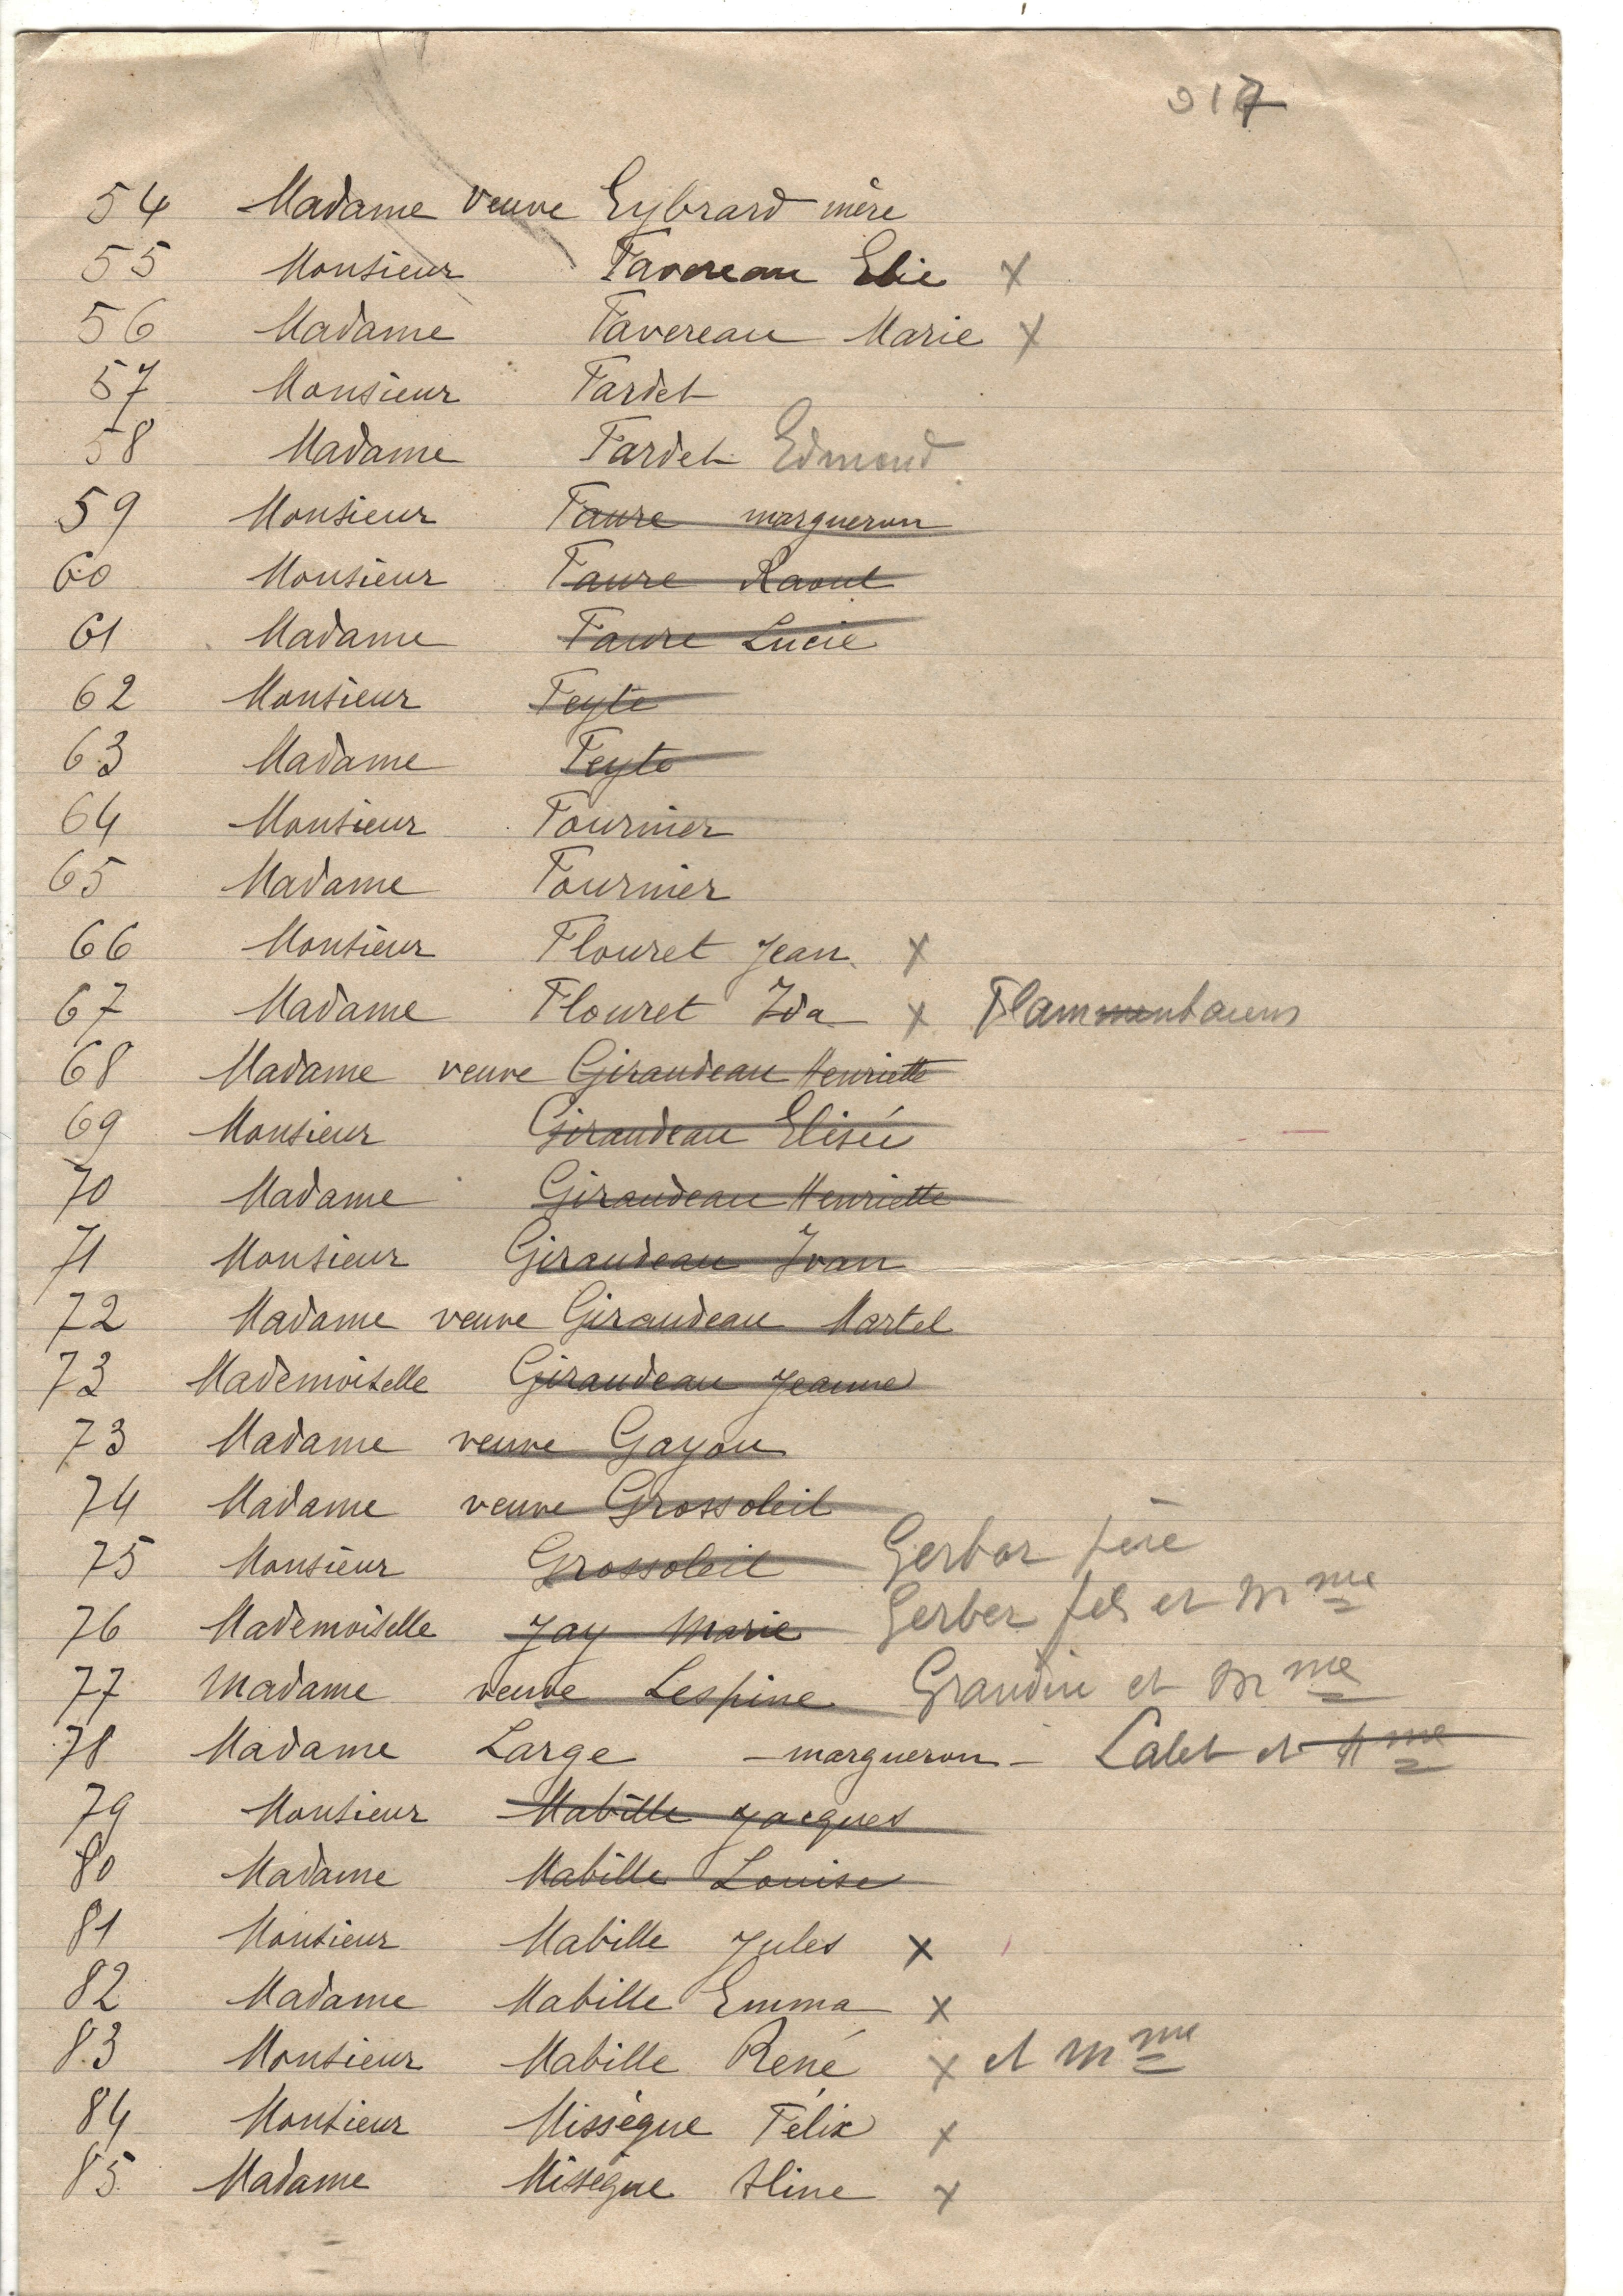 317
54 Madame veuve Eybrard mère
55 Monsieur Favereau Elie x
56 Madame Favereau Marie x
57 Monsieur Fardet
58 Madame Fardet Edmond
59 Monsieur Faure margueron
60 Monsieur Faure Raoul
61 Madame Faure Lucie
62 Monsieur Feyte
63 Madame Feyte
64 Monsieur Fournier
65 Madame Fournier
66 Monsieur Flouret Jean x
67 Madame Flouret Ida x
68 Madame veuve Giraudeau Henriette
69 Monsieur Giraudeau Elisée
70 Madame Giraudeau Henriette
71 Monsieur Giraudeau Ivan
72 Madame veuve Giraudeau Martel
73 Mademoiselle Giraudeau Jeanne
73 Madame veuve Gayou
74 Madame veuve Grossoleil
75 Monsieur Grossoleil Gerber père
76 Mademoiselle Jay Marie Gerber fils et Mme
77 Madame veuve Lespine Grandin et Mme
78 Madame Large - margueron - Lalet et Mme
79 Monsieur Mabille Jacques
80 Madame Mabille Louise
81 Monsieur Mabille Jules x
82 Madame Mabille Emma x
83 Monsieur Mabille René x et Mme
84 Monsieur Missègue Félix x
85 Madame Missègue Aline x